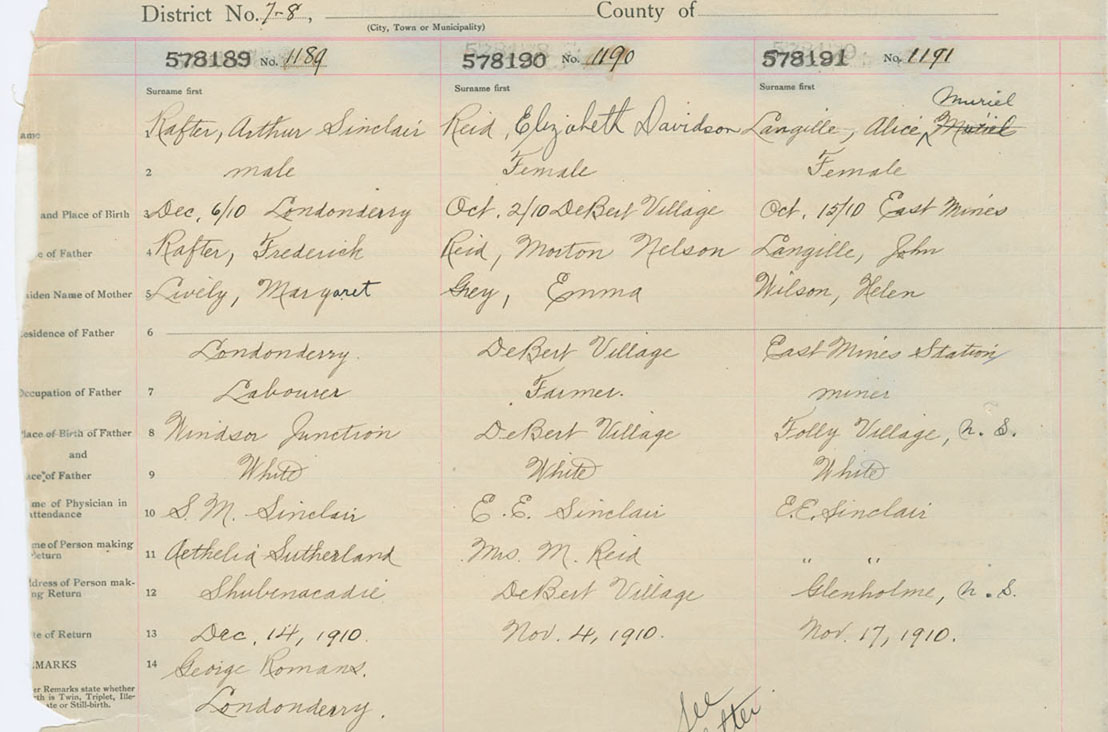 District No. 7-8, County of
(City, Town or Municipality)
578189 No. 1189 578190 No. 1190 578191 No. 1191
Surname first Surname first Surname first
Muriel
ame Rafter, Arthur Sinclair Reid, Elizabeth Davidson Langille, Alice, Muriel
2 male Female Female
and Place of Birth 3 Dec. 6/10 Londonderry Oct. 2/10 DeBert Village Oct. 15/10 East Mines
e of Father 4 Rafter, Frederick Reid, Morton Nelson Langille, John
aiden Name of Mother 5 Lively, Margaret Grey, Emma Wilson, Helen
esidence of Father 6
Londonderry. DeBert Village East Mines Station
Occupation of Father 7 Labourer Farmer. miner
lace of Birth of Father 8 Windsor Junction DeBert Village Folly Village, N.S.
and
ace of Father 9 White White White
me of Physician in
attendance 10 S. M. Sinclair E. E. Sinclair E. E. Sinclair
me of Person making
eturn 11 Aethelia Sutherland Mrs. M. Reid " "
ddress of Person mak-
ng Return 12 Shubenacadie DeBert Village Glenholme, N.S.
te of Return 13 Dec. 14, 1910. Nov. 4, 1910. Nov. 17, 1910.
EMARKS 14 George Romans.
er Remarks state whether
rth is Twin, Triplet, Ille-
ate or Still-birth.
Londonderry.
See